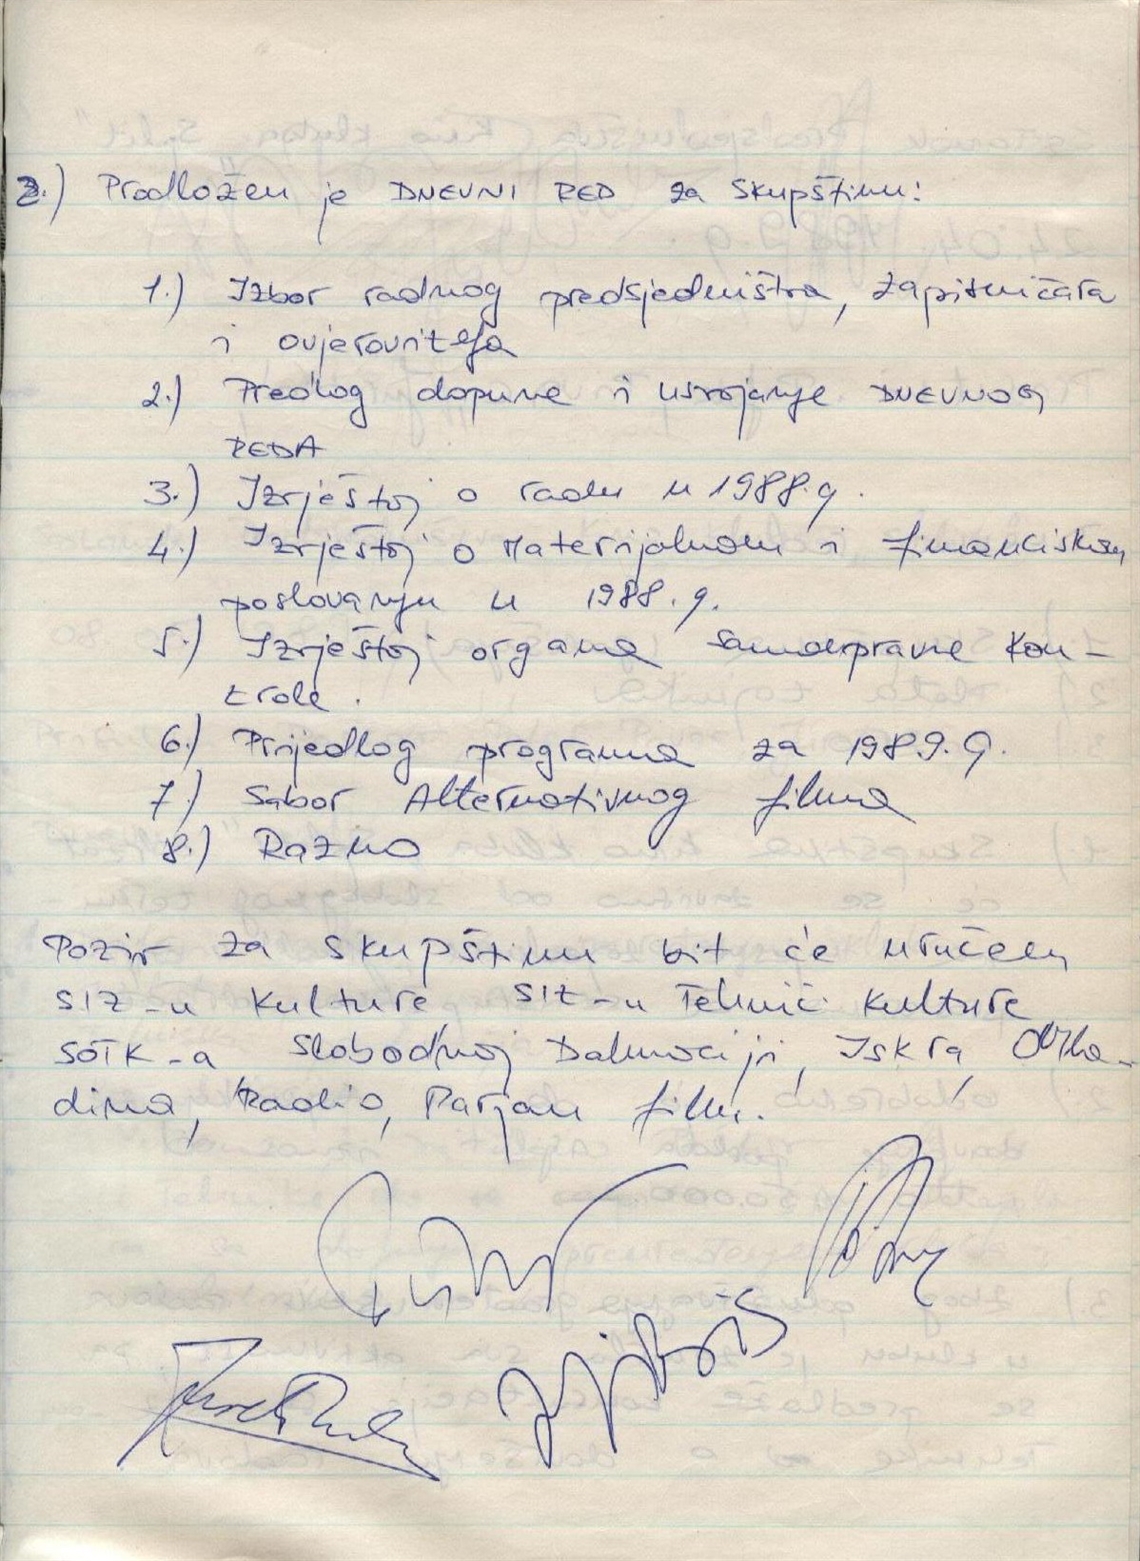 2.) Predložen je DNEVNI RED za Skupštinu:
1.) Izbor radnog predsjedništva, zapisničara
i ovjerovitelja
2.) Predlog dopune i usvojanje DNEVNOG
REDA
3.) Izvještaj o radu u 1988.g.
4.) Izvještaj o Materijalnom i financiskom
poslovanju u 1988.g.
5.) Izvještaj organa samoupravne kon-
trole.
6.) Prijedlog programa za 1989.g.
7.) Sabor Alternativnog filma
8.) Razno
Poziv za skupštinu bit će uručen
SIZ-u Kulture SIZ-u Tehnič. Kulture
SOTK-a Slobodnoj Dalmaciji, Iskra, Omla-
dina, Radio, Marjan film.